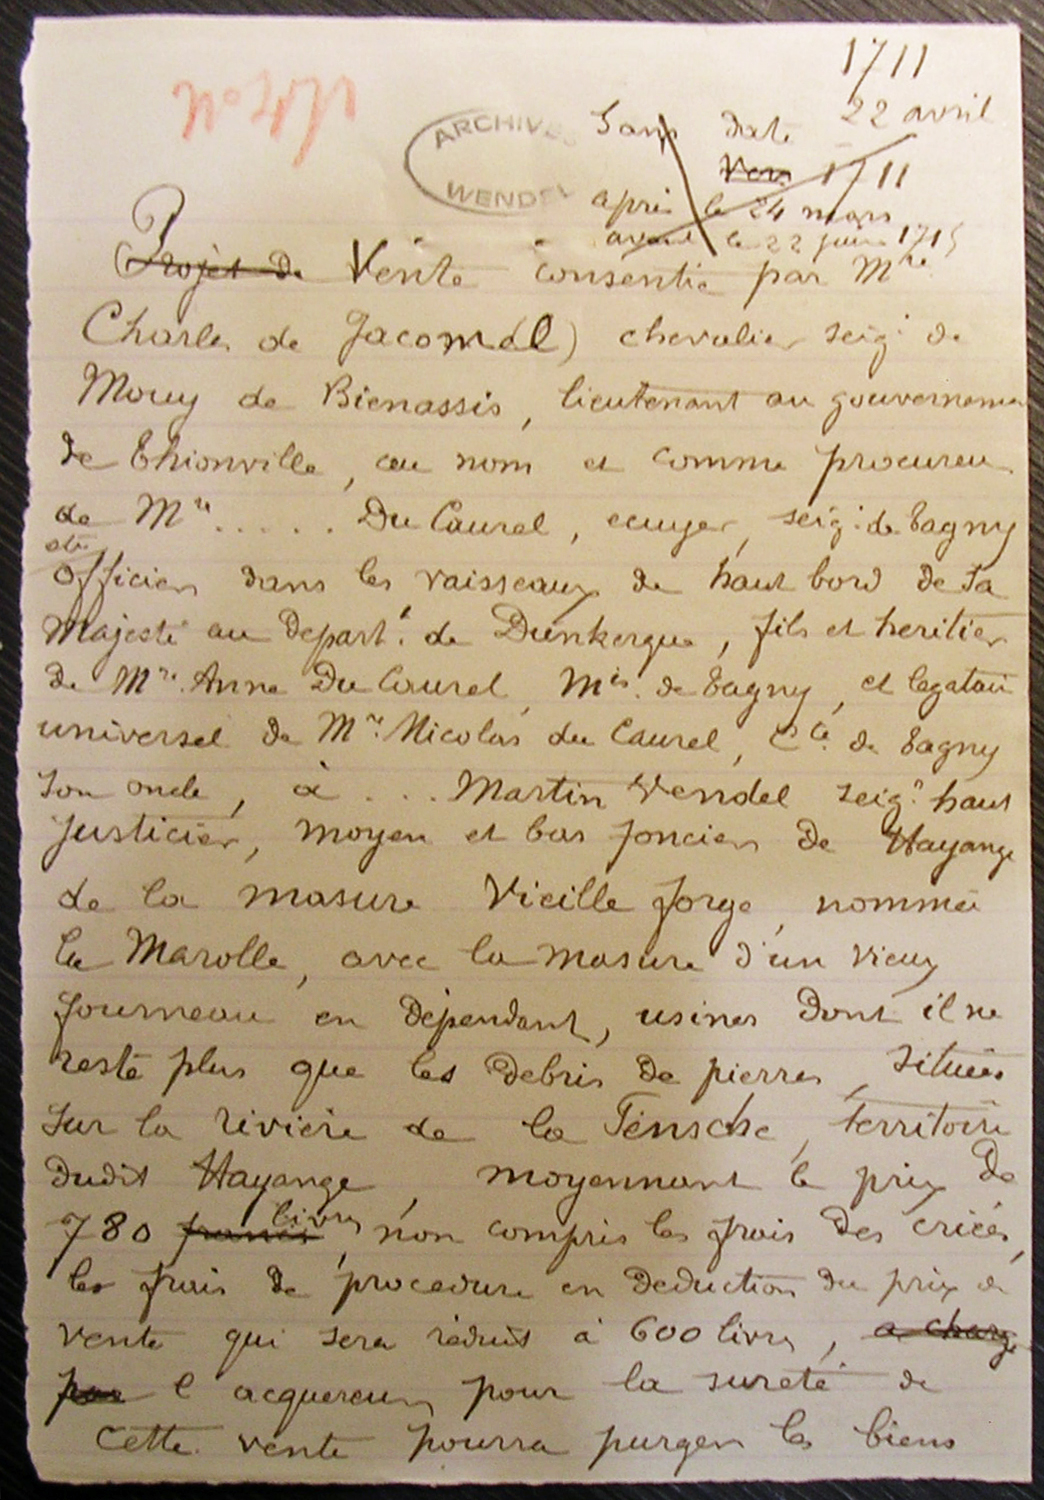 1711
22 avril
ARCHIVES
WENDEL
Sans date
Vers 1711
après le 24 mars
avant le 22 juin 1715
Projet de Vente consentie par Mre
Charles de Jacomel) chevalier seigr de
Mouy de Bienassis, lieutenant au gouvernemen
de Thionville, au nom et comme procureur
de Mre ..... Du Caurel, ecuyer, seigr de Tagny
etc
officier dans les vaisseaux de haut bord de Sa
Majesté au départt de Dunkerque, fils et heritier
de Mre Anne Du Caurel, Mis de Tagny, et legataire
universel de Mre Nicolas du Caurel, Cte de Tagny
son oncle, à ... Martin Wendel seigr haut
justicier, moyen et bas foncier de Hayange
de la masure Vieille forge, nommée
la Marolle, avec la masure d'un vieux
fourneau en dépendant, usines dont il ne
reste plus que les debris de pierres, situées
sur la rivière de la Fensche, territoire
dudit Hayange, moyennant le prix de
780 francs livres, non compris les frais des criées,
les frais de procedure en deduction du prix de
vente qui sera réduit à 600 livres, a charge
par l acquereur pour la sureté de
cette vente pourra purger les biens